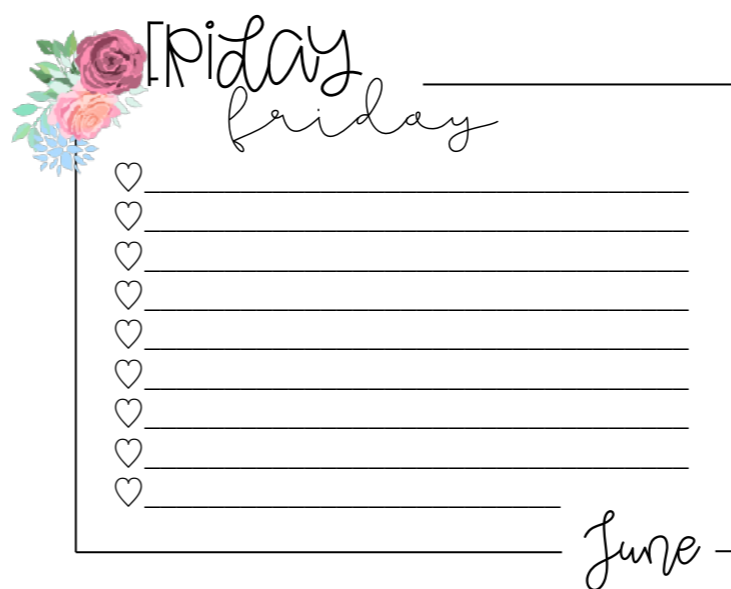 FRiDAY
friday
June